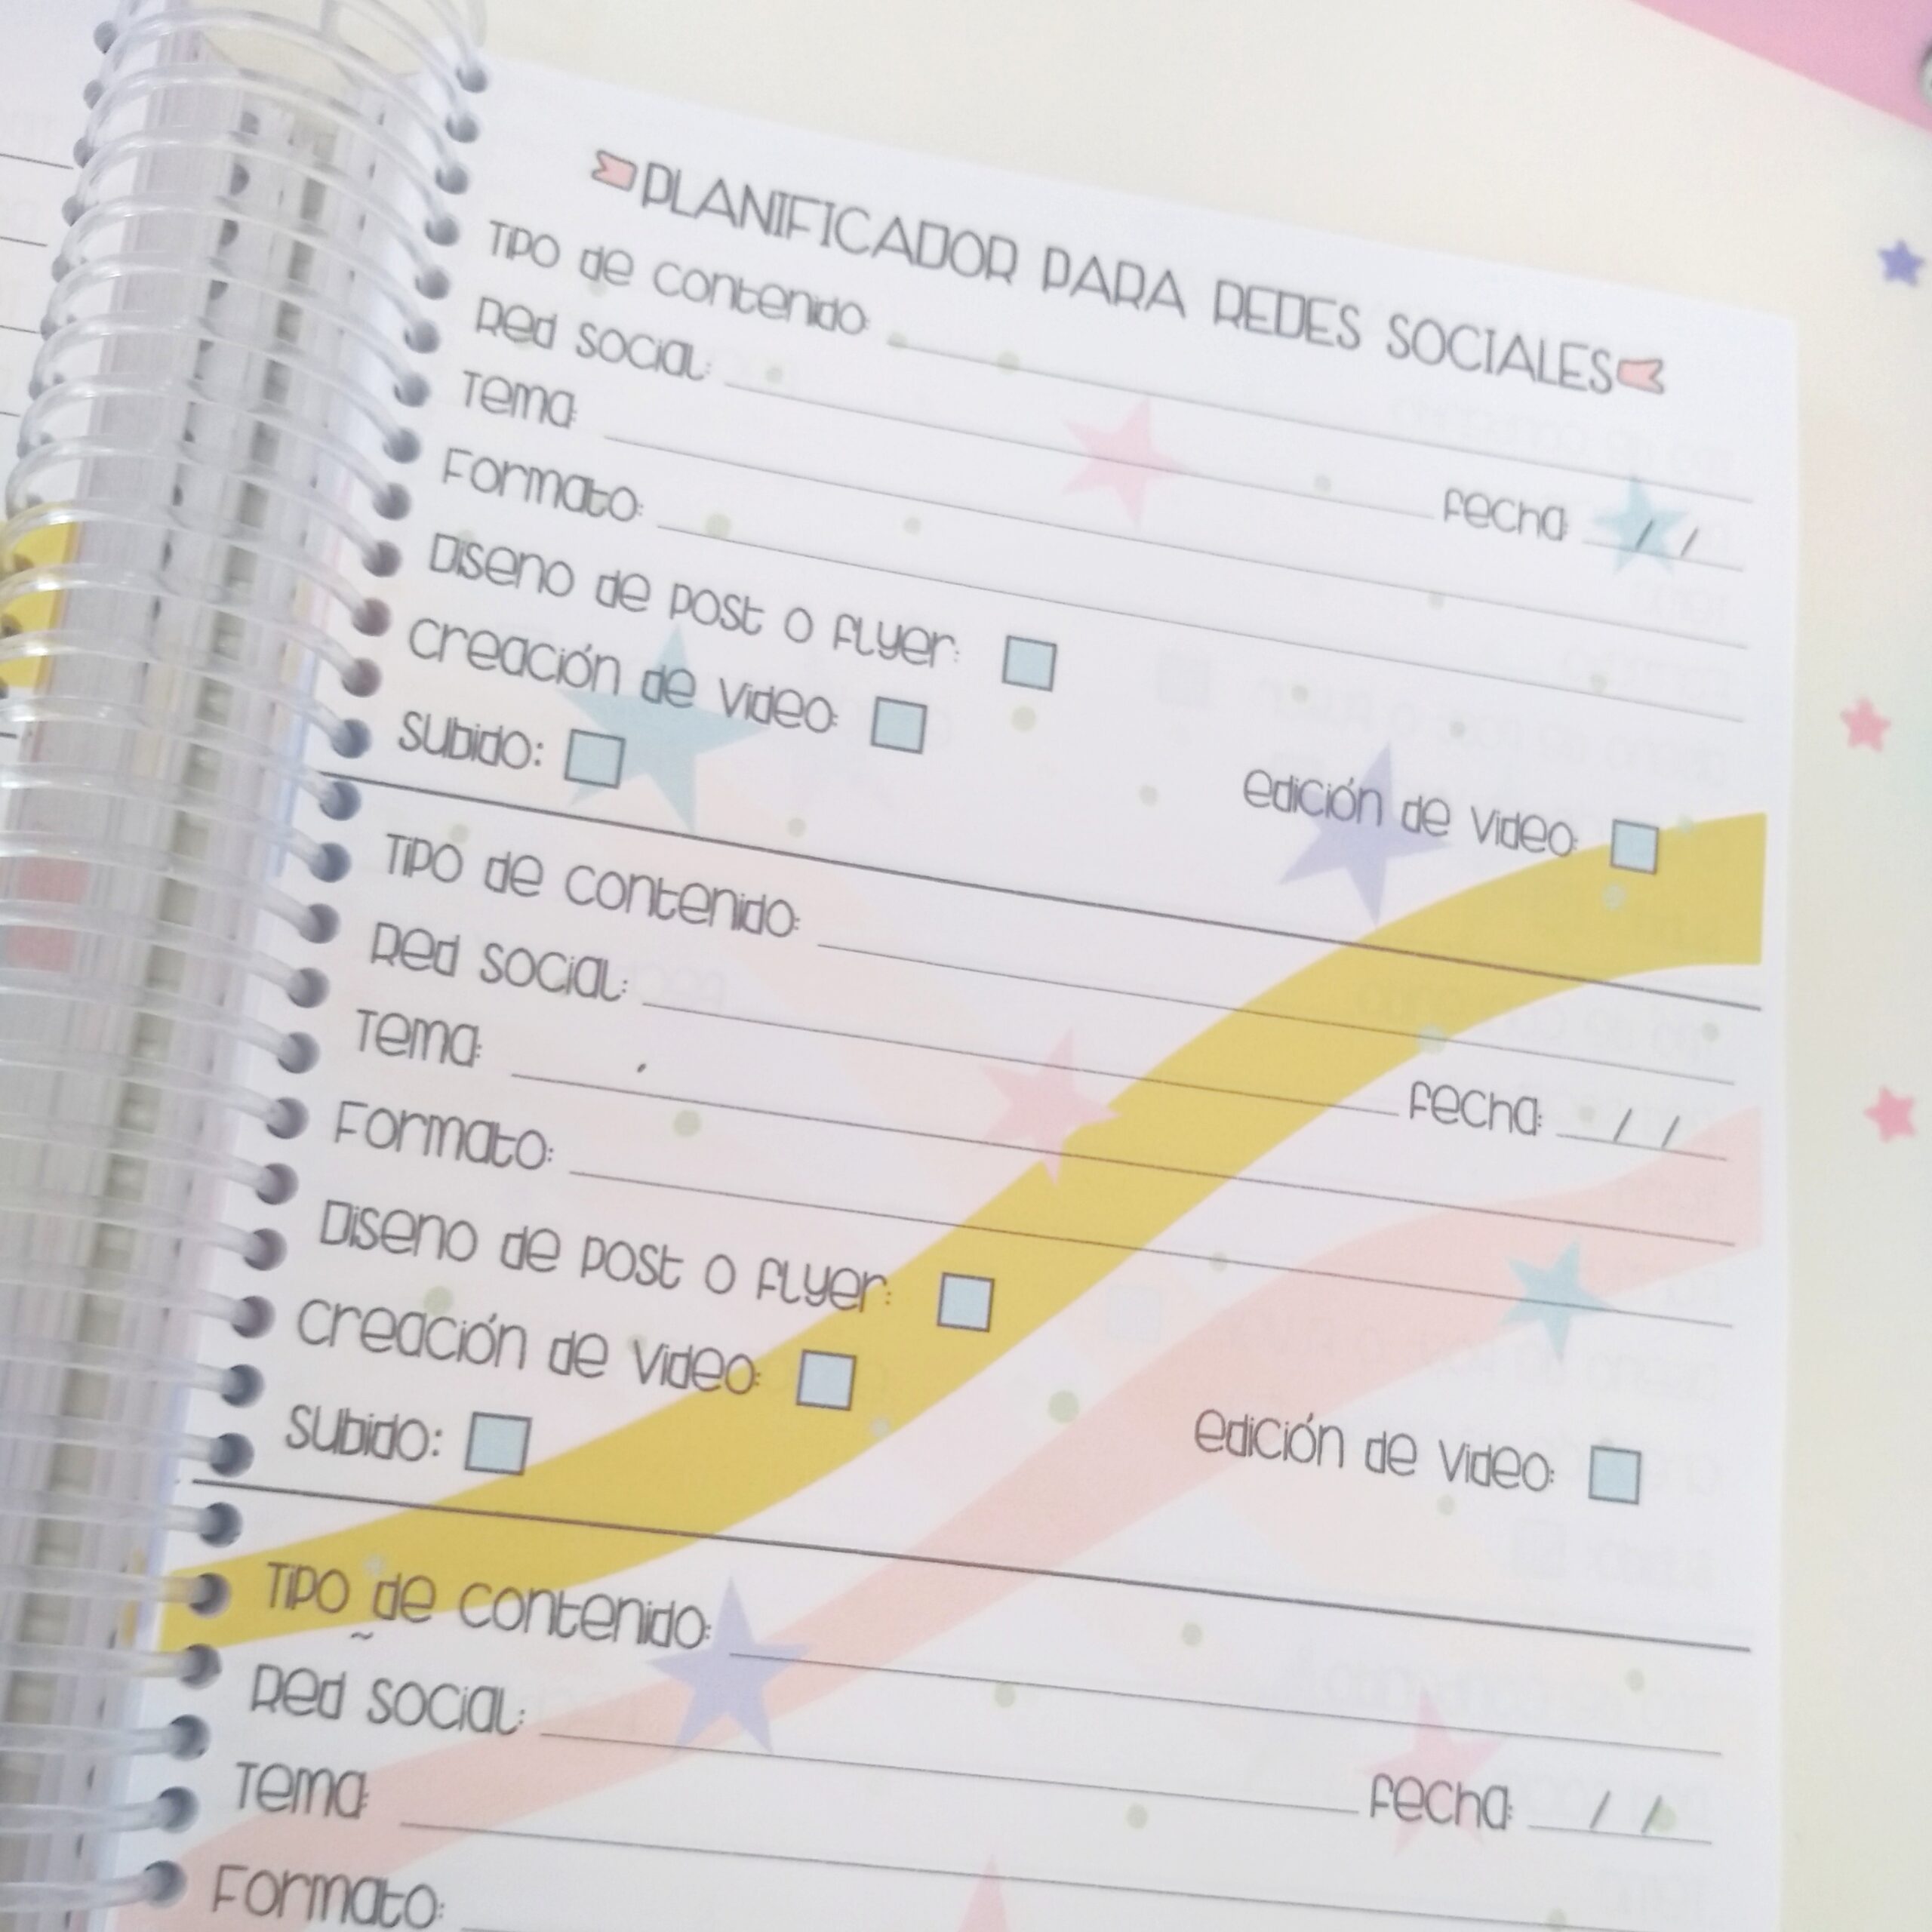 PLANIFICADOR PARA REDES SOCIALES
Tipo de contenido:
Red social: Fecha: / /
Tema:
Formato:
Diseno de post o flyer:
Creación de video: Edición de video:
Subido:
Tipo de contenido:
Red social: Fecha: / /
Tema:
Formato:
Diseno de post o flyer:
Creación de video: Edición de video:
Subido:
Tipo de contenido:
Red social: Fecha: / /
Tema:
Formato: